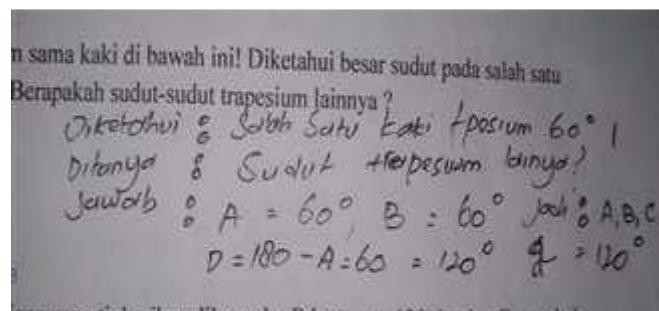 n sama kaki di bawah ini! Diketahui besar sudut pada salah satu
Berapakah sudut-sudut trapesium lainnya ?
Diketahui : Salah Satu kaki tposium 60°
Ditanya : Sudut
Jawab : A = 60°, B = 60° Jadi : A, B, C
D = 180 - A = 60 = 120° = 120°